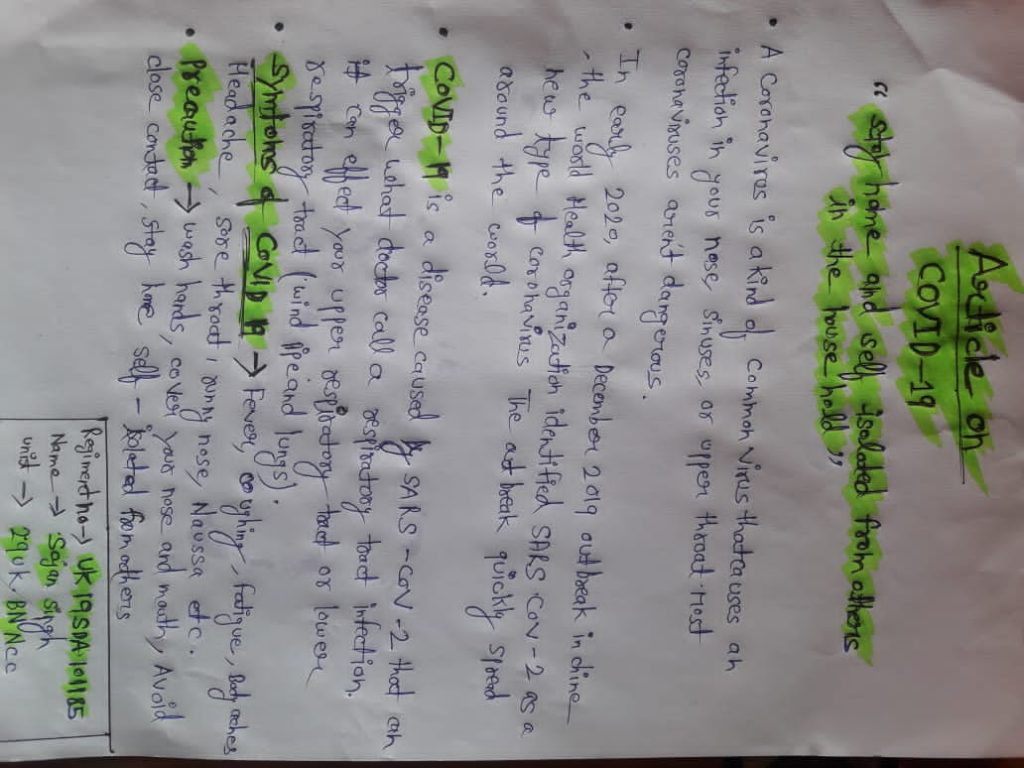 Article on
COVID-19
“ stay home and self isolated from others
in the house hold ”
• A Coronavirus is a kind of common virus that causes an
infection in your nose, sinuses, or upper throat. Most
coronaviruses aren't dangerous.
• In early 2020, after a December 2019 outbreak in chine
- the world Health organization identified SARS-Cov-2 as a
new type of coronavirus The outbreak quickly spread
around the world.
• COVID-19 is a disease caused by SARS-CoV-2 that can
trigger what doctor call a respiratory tract infection.
it can effect your upper respiratory tract or lower
respiratory tract (wind pipe and lungs).
• Symtoms of COVID 19 → Fever, coughing, fatigue, Body aches
Headache, sore throat, runny nose, Naussa etc.
• Precaution → wash hands, cover your nose and mouth, Avoid
close contact, stay home self - isolated from others
Regiment no → UK19SDA101165
Name → Sajan singh
unit → 29UK.BN NCC